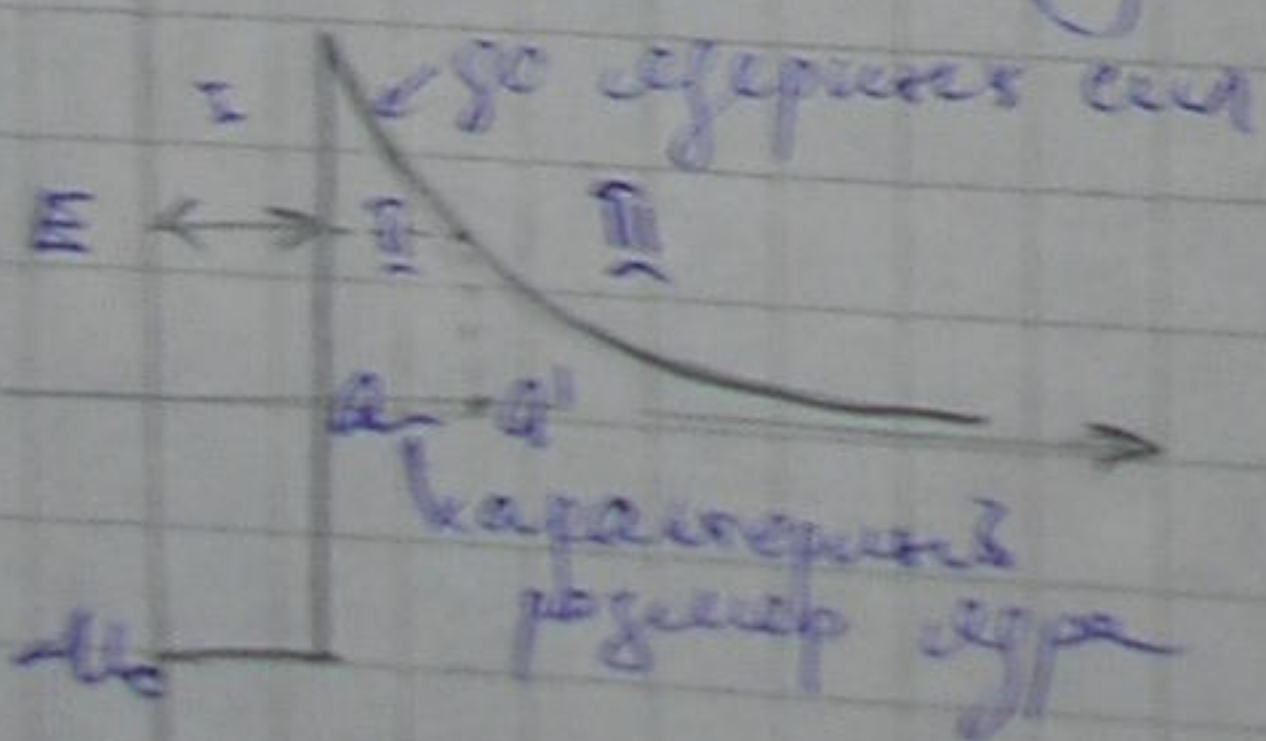 I
до ядерних сил
E
II
III
a
a'
характерний
розмір ядра
-U₀